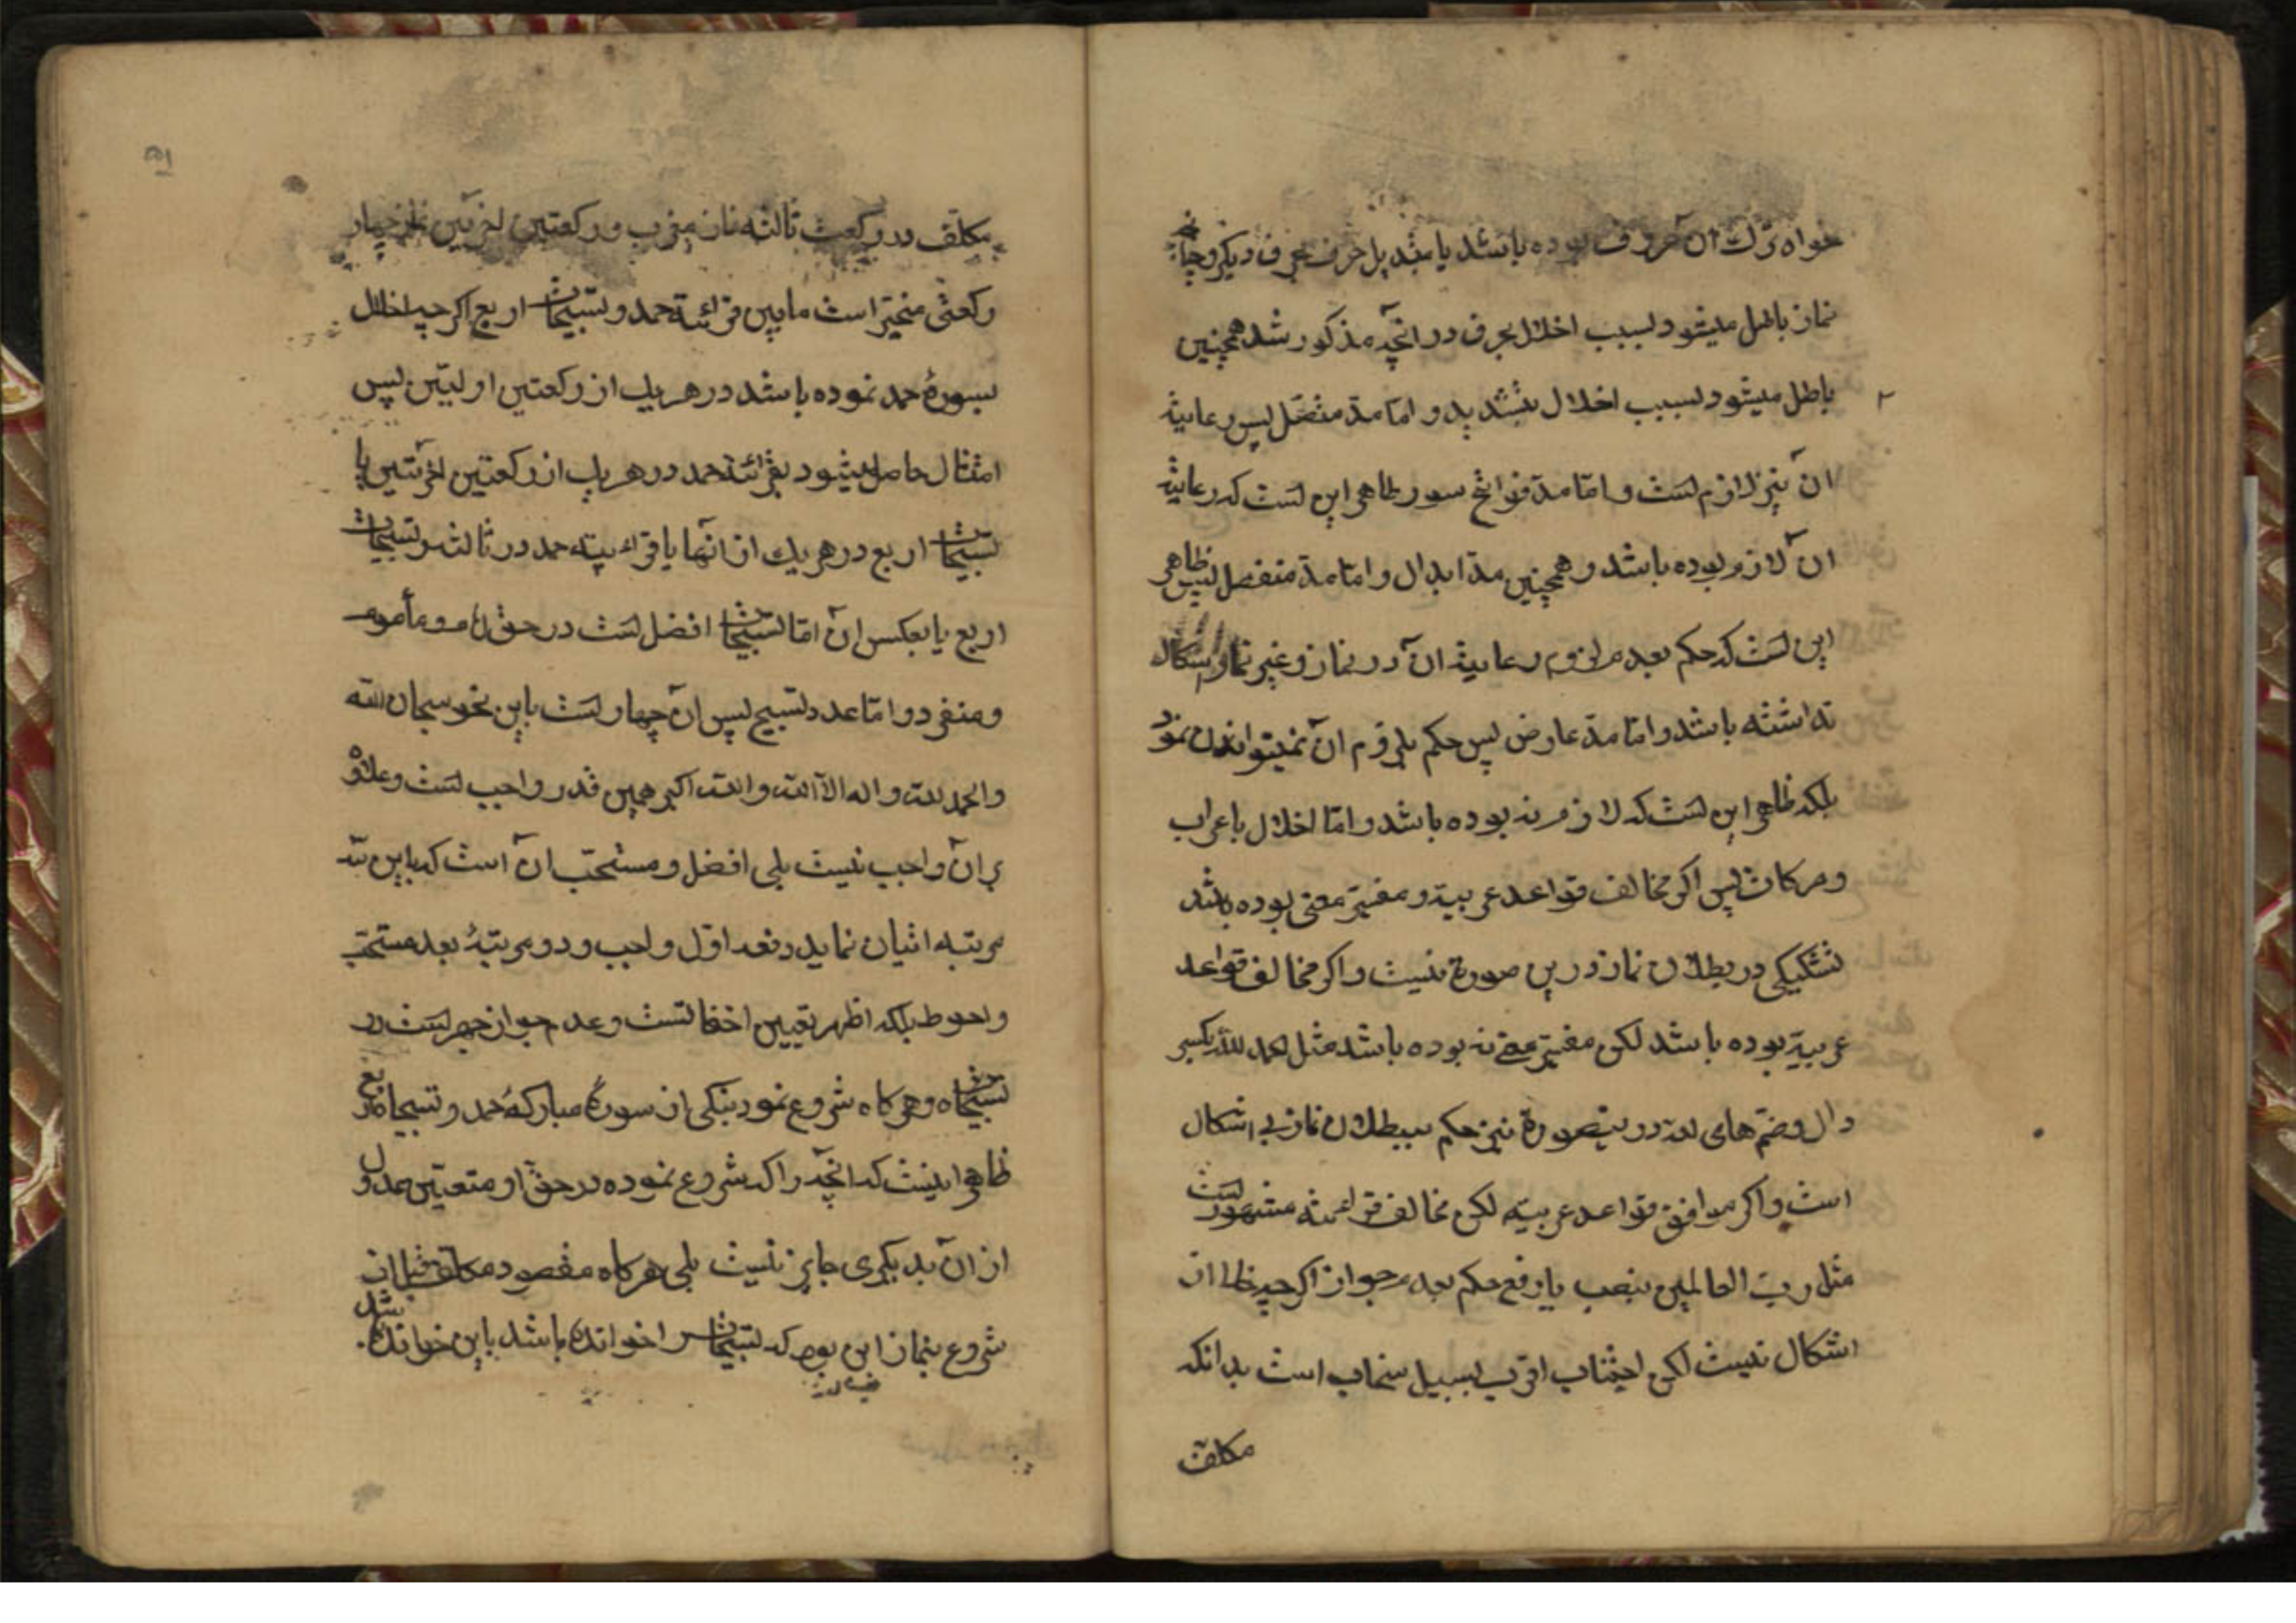 خواه ترك آن حرف بوده باشد یا تبدیل حرف بحرف دیکر و چنانچه
نماز باطل میشود بسبب اخلال بحرف در انچه مذکور شد همچنین
باطل میشود بسبب اخلال بتشدید و امّا مدّ متصّل پس رعایة
آن نیز لازم است و امّا مدّ فواتح سور ظاهر این است که رعایة
آن لازم بوده باشد و همچنین مدّ ابدال و امّا مدّ منفصل پس ظاهر
این است که حکم بعدم لزوم رعایة آن در نماز و غیر نماز اشکال
نداشته باشد و امّا مدّ عارض پس حکم بلزوم آن نمیتوان نمود
بلکه ظاهر این است که لازم نه بوده باشد و امّا اخلال باعراب
و حرکات پس اکر مخالف قواعد عربیة و مغیّر معنی بوده باشد
تشکیکی در بطلان نماز درین صورة نیست و اکر مخالف قواعد
عربیة بوده باشد لکن مغیّر معنی نه بوده باشد مثل الحمد لله بکسر
دال و ضمّ های لله در ینصورة نیز حکم ببطلان نماز بی اشکال
است و اکر موافق قواعد عربیّه لکن مخالف قرائت مشهور است
مثل ربّ العالمین بنصب یا رفع حکم بعدم جواز اکرچه خالی از
اشکال نیست لکن اجتناب اقرب بسبیل نجاب است بدانکه
مکلّف
مکلّف در رکعت ثالثه نماز مغرب و رکعتین اخرتین نماز چهار
رکعتی مخیّر است مابین قرائة حمد و تسبیحات اربع اکرچه اخلال
بسورهٔ حمد نموده باشد در هریك از رکعتین اولیّین پس
امتثال حاصل میشود بقرائة حمد در هریك از رکعتین اخرتین یا
تسبیحات اربع در هریك از انها یا قرائة حمد در ثالثه و تسبیحات
اربع یا بعکس آن امّا تسبیحات افضل است در حق امام و مأموم
و منفرد و امّا عدد تسبیح پس آن چهار است باین نحو سبحان الله
والحمد لله و لا اله الّا الله و الله اکبر همین قدر واجب است و علاوه
بر آن واجب نیست بلی افضل و مستحّب آن است که باین سه
مرتبه اتیان نماید دفعه اوّل واجب و دو مرتبهٔ بعد مستحب
و احوط بلکه اظهر تعیین اخفاتست و عدم جواز جهر است در
تسبیحات و هرکاه شروع نمود بیکی از سورهٔ مبارکهٔ حمد و تسبیحات اربع
ظاهر اینست که انچه را که شروع نموده در حقّ او متعیّن عدول
از آن بدیکری جایز نیست بلی هرکاه مقصود مکلّف قبل از
شروع بنماز این بود که تسبیحات را خوانده باشد باین خوانده شد